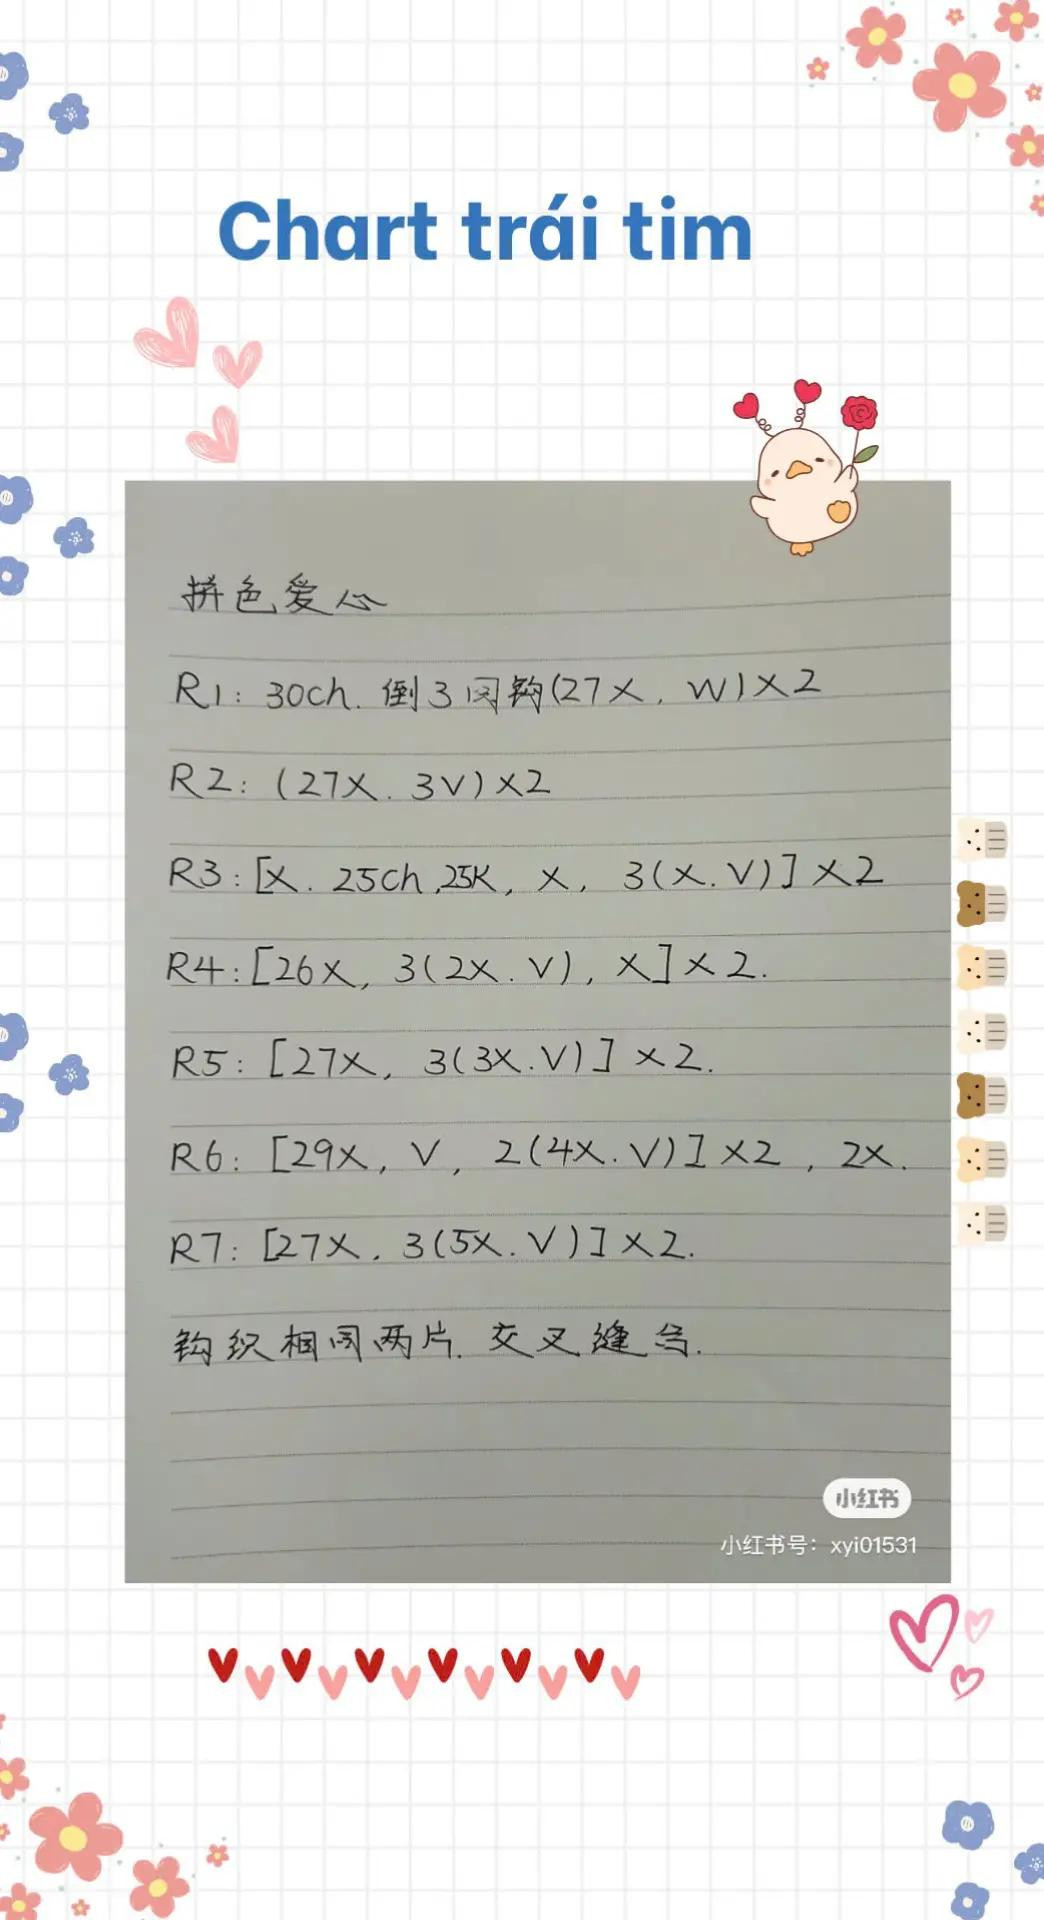 Chart trái tim
拼色爱心
R1: 30ch. 倒3因钩(27X, W)X2
R2: (27X. 3V)X2
R3: [X. 25ch,25K, X, 3(X.V)]X2
R4: [26X, 3(2X.V), X]X2.
R5: [27X, 3(3X.V)]X2.
R6: [29X, V, 2(4X.V)]X2, 2X.
R7: [27X, 3(5X.V)]X2.
钩织相同两片. 交叉缝合.
小红书
小红书号: xyi01531